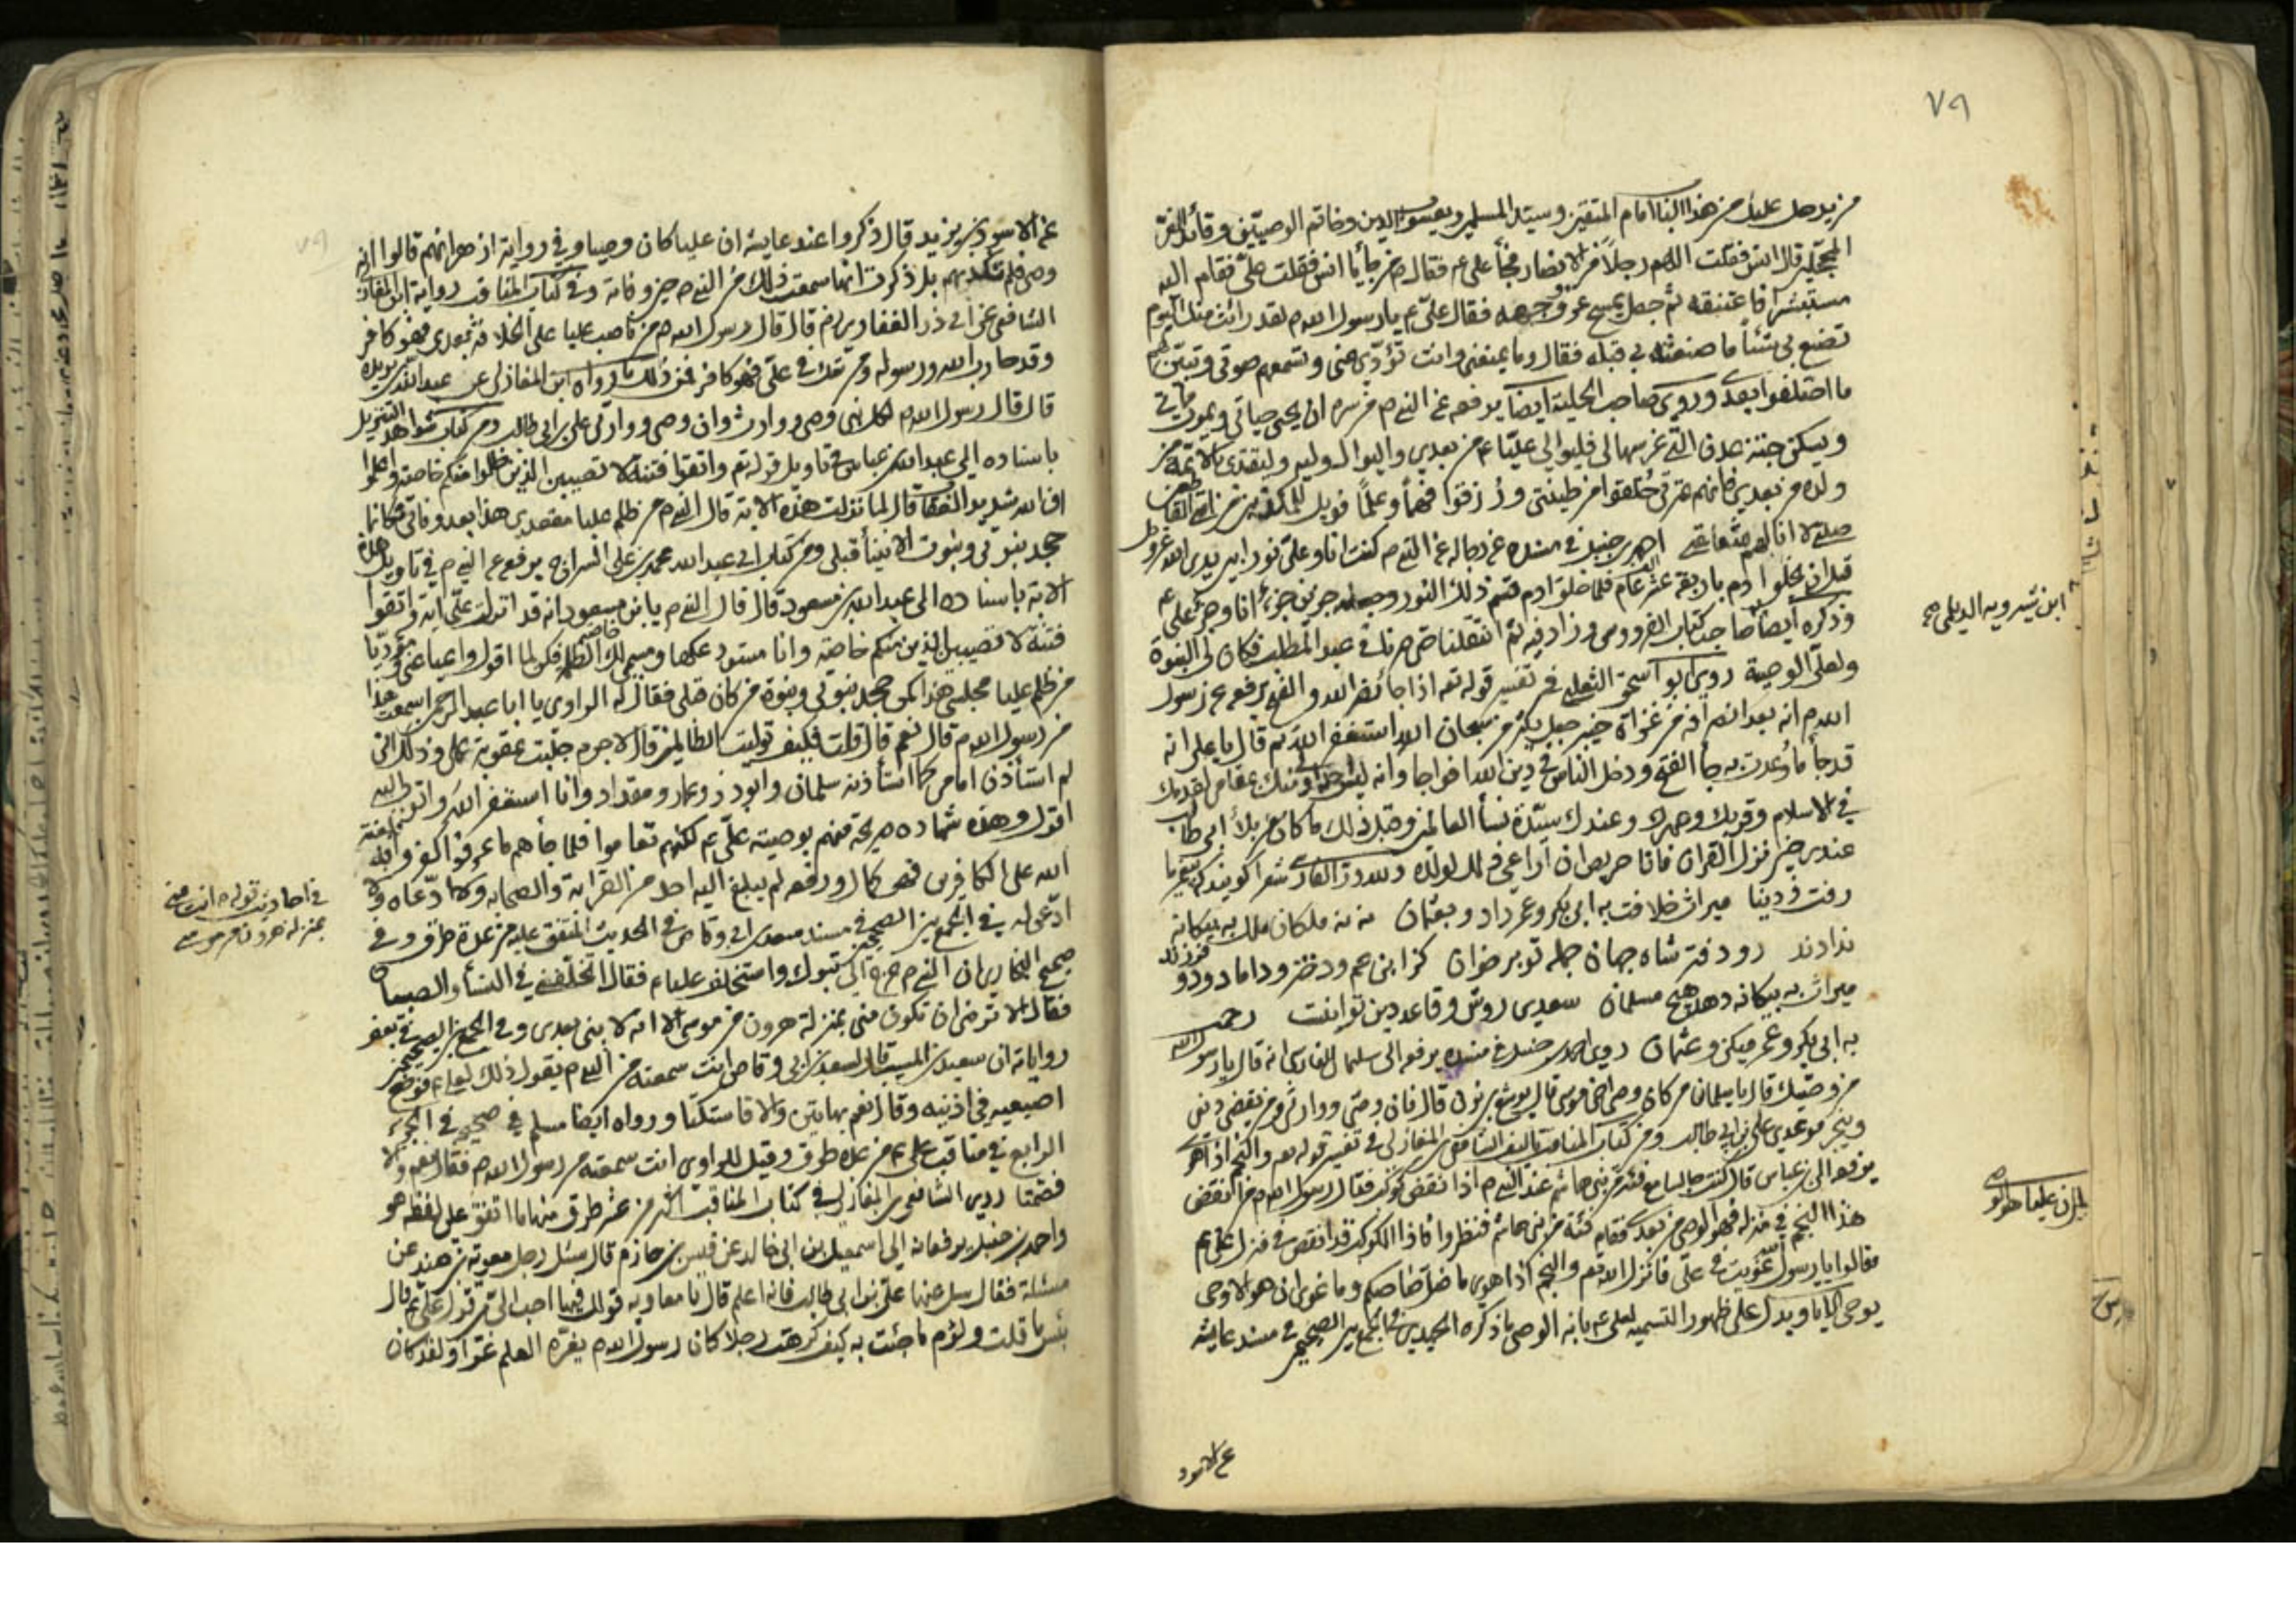 ٧٩
من يدخل عليك من هذا الباب امام المتقين وسيد المسلمين ويعسوب الدين وخاتم الوصيين وقائد الغر
المحجلين قال انس فقلت اللهم رجلاً من الانصار فجأ علي ع فقال ص من جأ يا انس فقلت علي فقام اليه
مستبشرا فاعتنقه ثم جعل يمسح عرق وجهه فقال علي ع يا رسول الله ص لقد رأيت منك اليوم
تصنع بي شيئاً ما صنعته بي قبله فقال وما يمنعني وانت تؤدي عني وتسمعهم صوتي وتبين لهم
ما اختلفوا بعدي وروى صاحب الحلية ايضا يرفعه عن النبي ص من سره ان يحيى حياتي ويموت مماتي
ويسكن جنة عدن التي غرسها لي فليوالي عليا ع من بعدي وليوال وليه وليقتدي بالائمة من
ولده من بعدي فانهم عترتي خلقوا من طينتي ورزقوا فهماً وعلماً فويل للمكذبين من امتي القاطعين
صلتي لا انالهم شفاعتي احمد بن حنبل في مسنده عن رجاله عن النبي ص كنت انا وعلي نورا بين يدي الله عز وجل
قبل ان يخلق ادم باربعة عشر الف عام فلما خلق ادم قسم ذلك النور وجعله جزئين جزء انا وجزء علي ع
وذكره ايضا صاحب كتاب الفردوس وزاد فيه ثم انتقلنا حتى صرنا في عبد المطلب فكان لي النبوة
ولعلي الوصية روى ابو اسحق الثعلبي في تفسير قوله تعه اذا جأ نصر الله والفتح يرفعه عن رسول
الله ص انه بعد انصرافه من غزاة خيبر جعل يكثر من سبحان الله استغفر الله ثم قال يا علي انه
قد جأ ما وعدت به جأ الفتح ودخل الناس في دين الله افواجا وانه ليس احد احق منك بمقامي لقدمك
في الاسلام وقربك وصهرك وعندك سيدة نسأ العالمين وقبل ذلك ما كان من بلأ ابي طالب
عندي حين نزل القران فانا حريص ان اراعي ذلك لولده ولله در الفارسي شعرا كويند كه پيغمبر ما
رفت ز دنيا ميراث خلافت به ابي بكر وعمر داد وبعثمان نه نه ملكان ملك به بيكانه
ندادند رو دفتر شاهان جهان جمله تو برخوان كز ابن عم ودختر وداماد ودو فرزند
ميراث به بيكانه دهد هيچ مسلمان سعدي روش وقاعده دين تو اينست رحمت
به ابي بكر وعمر ميكن وعثمان روى احمد بن حنبل في مسنده يرفعه الى سلمان الفارسي انه قال يا رسول الله
من وصيك قال يا سلمان من كان وصي اخي موسى قال يوشع بن نون قال فان وصيي ووارثي ومن يقضي ديني
وينجز موعدي علي بن ابي طالب ومن كتاب المناقب تاليف الشافعي ابن المغازلي في تفسير قوله تعه والنجم اذا هوى
يرفعه الى ابن عباس قال كنت جالسا مع فئة من بني هاشم عند النبي ص اذا انقض كوكب فقال رسول الله ص من انقض
هذا النجم في منزله فهو الوصي من بعدي فقام فئة من بني هاشم فنظروا فاذا الكوكب قد انقض في منزل علي ع
فقالوا يا رسول الله غويت في علي فانزل الله تعه والنجم اذا هوى ما ضل صاحبكم وما غوى ان هو الا وحي
يوحى الايا ويدل على ظهور التسمية لعلي ع بانه الوصي ما ذكره الحميدي في الجمع بين الصحيحين في مسند عايشه
عن الاسود
ابن شيرويه الديلمي
عن الاسود بن يزيد قال ذكروا عند عايشه ان عليا كان وصيا وفي رواية ازهر انهم قالوا انه
وصي فلم تكذبهم بل ذكرت انها ما سمعت ذلك من النبي ص حين وفاته وفي كتاب المناقب رواية ابن المغازلي
الشافعي عن ابي ذر الغفاري رض قال قال رسول الله ص من ناصب عليا على الخلافة بعدي فهو كافر
وقد حارب الله ورسوله ومن شك في علي فهو كافر فمن ذلك ما رواه ابن المغازلي عن عبد الله بن بريده
قال قال رسول الله ص لكل نبي وصي ووارث وان وصيي ووارثي علي بن ابي طالب ومن كتاب شواهد التنزيل
باسناده الى عبد الله بن عباس في تاويل قوله تعه واتقوا فتنة لا تصيبن الذين ظلموا منكم خاصة واعلموا
ان الله شديد العقاب قال لما نزلت هذه الاية قال النبي ص من ظلم عليا مقعدي هذا بعد وفاتي فكانما
جحد بنبوتي ونبوت الانبيأ قبلي ومن كتاب ابي عبد الله محمد بن علي السراج يرفعه عن النبي ص في تاويل هذه
الاية باسناده الى عبد الله بن مسعود قال قال النبي ص يا بن مسعود انه قد انزلت علي اية واتقوا
فتنة لا تصيبن الذين منكم خاصة وانا مستودعكها ومسمي لك الظلمة فكن لما اقول واعيا عني مؤديا
من ظلم عليا مجلسي هذا كمن جحد بنبوتي ونبوة من كان قبلي فقال له الراوي يا ابا عبد الرحمن اسمعت هذا
من رسول الله ص قال نعم قال قلت فكيف توليت الظالمين قال لا جرم جلبت عقوبة عملي وذلك اني
لم استأذن امامي كما استأذنه سلمان وابو ذر وعمار ومقداد وانا استغفر الله واتوب اليه
اقول وهذه شهاده صريحة منهم بوصية علي ع لكنهم تعاموا فلما جأهم ما عرفوا كفروا به فلعنة
الله على الكافرين فهي كمال ورفعه لم يبلغ اليه احد من القرابة والصحابة ولا ادعاه ولا
ادعي له في الجمع بين الصحيحين في مسند سعد بن ابي وقاص في الحديث المتفق عليه من عدة طرق وفي
صحيح البخاري ان النبي ص خرج الى تبوك واستخلف عليا ع فقال اتخلفني في النسأ والصبيان
فقال الا ترضى ان تكون مني بمنزلة هرون من موسى الا انه لا نبي بعدي وفي الجمع بين الصحيحين في بعض
رواياته ان سعيد بن المسيب قال لسعد بن ابي وقاص انت سمعته من النبي ص يقول ذلك لعلي ع فوضع
اصبعيه في اذنيه وقال نعم بهاتين والا فاستكتا ورواه ايضا مسلم في صحيحه في الجزء
الرابع في مناقب علي ع من عدة طرق وقيل للراوي انت سمعته من رسول الله ص فقال نعم والا
فصمتا روى الشافعي ابن المغازلي في كتاب المناقب اكثر من عشر طرق منها ما اتفق على لفظه هو
واحمد بن حنبل يرفعانه الى اسمعيل بن ابي خالد عن قيس بن حازم قال سئل رجل معوية بن هند عن
مسئلة فقال سل عنها علي بن ابي طالب فانه اعلم قال يا معاويه قولك فيها احب الي من قول علي ع قال
بئس ما قلت ولؤم ما جئت به كيف كرهت رجلا كان رسول الله ص يغره العلم غرا ولقد كان
في احاديث قوله ص انت مني
بمنزله هرون من موسى